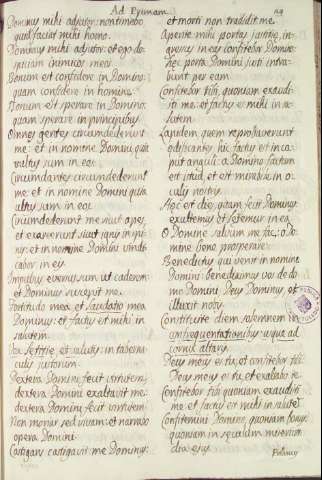 Ad Primam
Dominus mihi adjutor: non timebo
quid faciat mihi homo.
Dominus mihi adjutor: et ego de-
spiciam inimicos meos
Bonum est confidere in Domino:
quam confidere in homine.
Bonum est sperare in Domino:
quam sperare in principibus
Omnes gentes circumdederunt
me: et in nomine Domini quia
ultus sum in eos.
Circumdantes circumdederunt
me: et in nomine Domini quia
ultus sum in eos
Circumdederunt me sicut apes,
et exarserunt sicut ignis in spi-
nis: et in nomine Domini vindi-
cabor in eos
Impulsus eversus sum ut caderem:
et Dominus suscepit me.
Fortitudo mea et laudatio mea
Dominus: et factus est mihi in
salutem.
Vox letitie et salutis: in taberna-
culis justorum.
Dextera Domini fecit virtutem,
dextera Domini exaltavit me:
dextera Domini fecit virtutem.
Non moriar sed vivam: et narrabo
opera Domini
Castigans castigavit me Dominus:
et morti non tradidit me.
Aperite mihi portas justitie, in-
gressus in eas confitebor Domino:
hec porta Domini justi intra-
bunt per eam
Confitebor tibi, quoniam exaudi-
sti me: et factus es mihi in sa-
lutem.
Lapidem quem reprobaverunt
edificantes: hic factus est in ca-
put anguli. A Domino factum
est istud, et est mirabile in o-
culis nostris.
Hec est dies, quam fecit Dominus:
exultemus et letemur in ea.
O Domine salvum me fac, o Do-
mine bene prosperare:
Benedictus qui venit in nomine
Domini: benediximus vos de do-
mo Domini Deus Dominus, et
illuxit nobis
Constituite diem solemnem in
confrequentationibus: usque ad
cornu altaris.
Deus meus es tu, et confitebor tibi:
Deus meus es tu, et exaltabo te.
Confitebor tibi quoniam exaudisti
me et factus est mihi in salutem
Confitemini Domino, quoniam bonus:
quoniam in seculum misericor-
dia ejus.